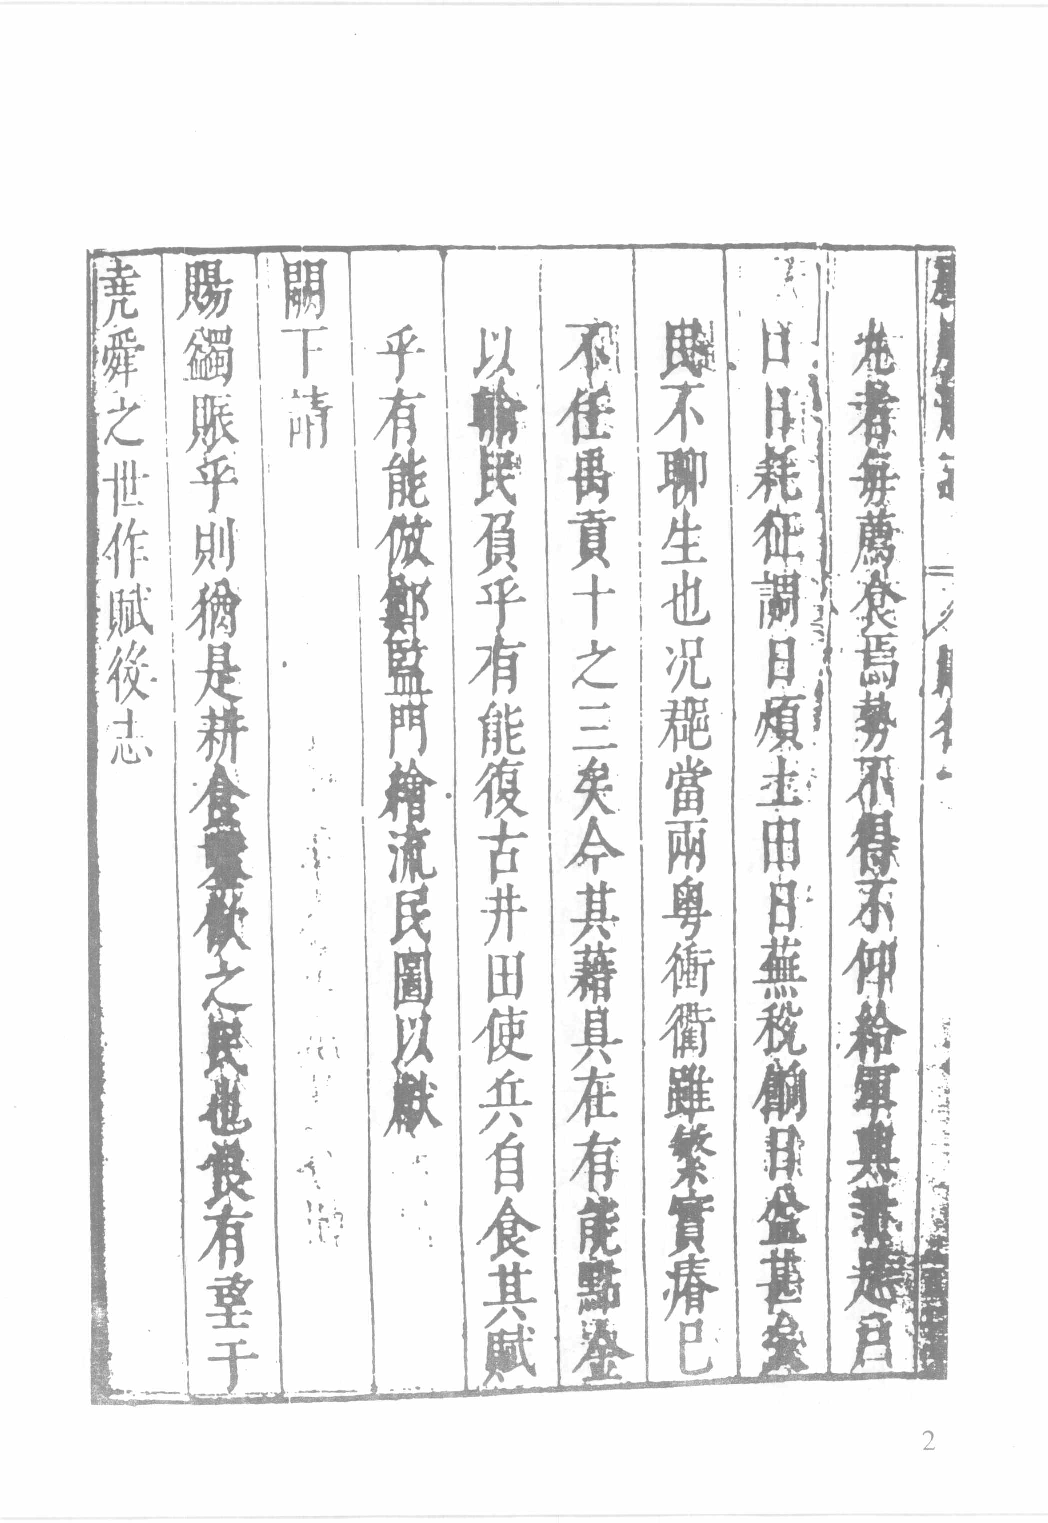 者每薦食焉勢不得不仰給軍興是君
日日耗征調日煩土田日蕪稅餉日益甚矣
民不聊生也況郡當兩粵衝衢雖繁實瘠已
不任禹貢十之三矣今其藉具在有能點金
以輸民負乎有能復古井田使兵自食其賦
乎有能倣鄭監門繪流民圖以獻
闕下請
賜蠲賑乎則猶是耕食鑿飲之民也良有望于
堯舜之世作賦後志
2